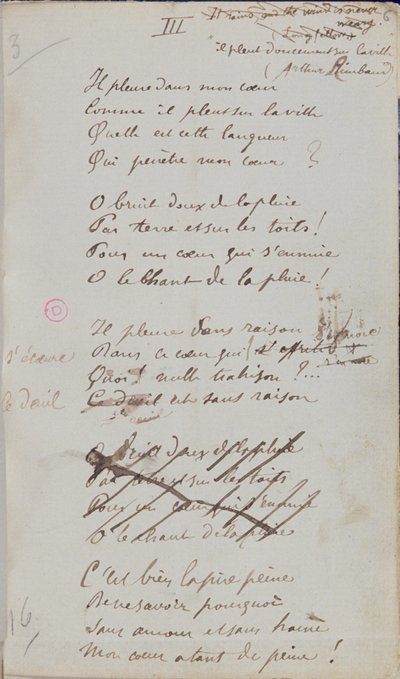 3
III
It rains, and the wind is never
weary
(Longfellow)
il pleut doucement sur la ville
(Arthur Rimbaud)
Il pleure dans mon cœur
Comme il pleut sur la ville
Quelle est cette langueur
Qui pénètre mon cœur ?
O bruit doux de la pluie
Par terre et sur les toits !
Pour un cœur qui s'ennuie
O le chant de la pluie !
Il pleure sans raison
Dans ce cœur qui
s'écœure
Quoi ! nulle trahison ?...
le deuil
Ce deuil est sans raison
O bruit doux de la pluie
Par terre et sur les toits
Pour un cœur qui s'ennuie
O le chant de la pluie
C'est bien la pire peine
De ne savoir pourquoi
Sans amour et sans haine
Mon cœur a tant de peine !
16